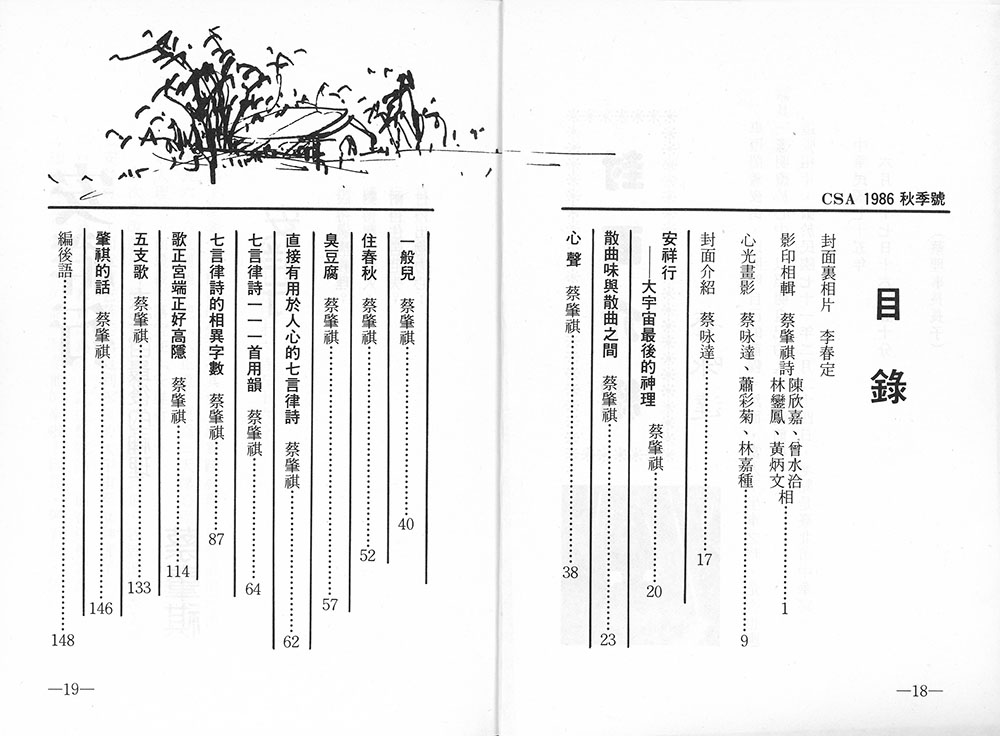 CSA 1986 秋季號
目錄
封面裏相片 李春定
影印相輯 蔡肇祺詩 陳欣嘉、曾水洽 林鑾鳳、黃炳文相……1
心光畫影 蔡咏達、蕭彩菊、林嘉種……9
封面介紹 蔡咏達……17
安祥行
——大宇宙最後的神理 蔡肇祺……20
散曲味與散曲之間 蔡肇祺……23
心聲 蔡肇祺……38
—18—
一般兒 蔡肇祺……40
住春秋 蔡肇祺……52
臭豆腐 蔡肇祺……57
直接有用於人心的七言律詩 蔡肇祺……62
七言律詩一一一首用韻 蔡肇祺……64
七言律詩的相異字數 蔡肇祺……87
歌正宮端正好高隱 蔡肇祺……114
五支歌 蔡肇祺……133
肇祺的話 蔡肇祺……146
編後語……148
—19—